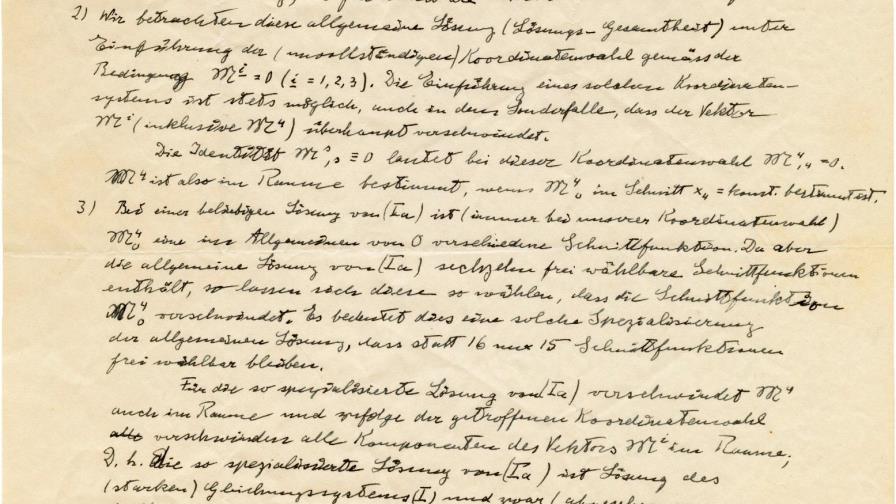 2) Wir betrachten diese allgemeine Lösung (Lösungs-Gesamtheit) unter
Einführung der (unvollständigen) Koordinatenwahl gemäss der
Bedingung 𝔐^i = 0 (i = 1, 2, 3). Die Einführung eines solchen Koordinaten-
systems ist stets möglich, auch in dem Sonderfalle, dass der Vektor
𝔐^i (inklusive 𝔐^4) überhaupt verschwindet.
Die Identität 𝔐^s,s ≡ 0 lautet bei dieser Koordinatenwahl 𝔐^4,4 = 0.
𝔐^4 ist also im Raume bestimmt, wenn 𝔐^4_0 im Schnitt x_4 = konst. bestimmt ist.
3) Bei einer beliebigen Lösung von (Ia) ist (immer bei unserer Koordinatenwahl)
𝔐^4_0 eine im Allgemeinen von 0 verschiedene Schnittfunktion. Da aber
die allgemeine Lösung von (Ia) sechzehn frei wählbare Schnittfunktionen
enthält, so lassen sich diese so wählen, dass die Schnittfunktion
𝔐^4_0 verschwindet. Es bedeutet dies eine solche Spezialisierung
der allgemeinen Lösung, dass statt 16 nur 15 Schnittfunktionen
frei wählbar bleiben.
Für die so spezialisierte Lösung von (Ia) verschwindet 𝔐^4
auch im Raume und zufolge der getroffenen Koordinatenwahl
alle verschwinden alle Komponenten des Vektors 𝔐^i im Raume;
D. h. die so spezialisierte Lösung von (Ia) ist Lösung des
(starken) Gleichungssystems (I) und zwar